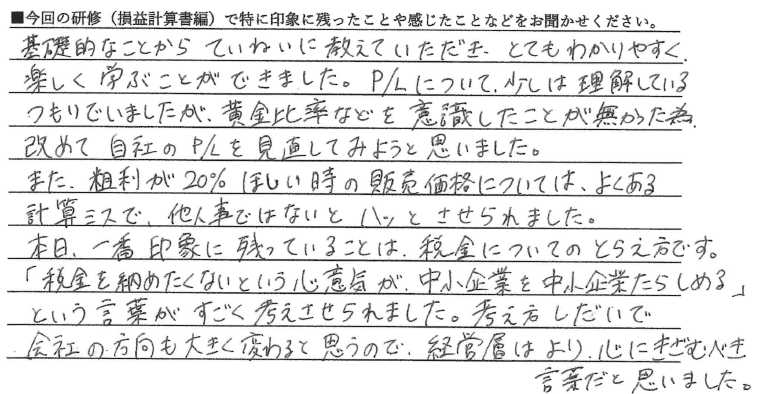 ■今回の研修（損益計算書編）で特に印象に残ったことや感じたことなどをお聞かせください。
基礎的なことから ていねいに 教えていただき、とてもわかりやすく、
楽しく 学ぶことができました。P/Lについて、少しは 理解している
つもりでいましたが、黄金比率などを 意識したことが無かった為、
改めて 自社の P/Lを見直してみようと思いました。
また、粗利が20% ほしい時の販売価格については、よくある
計算ミスで、他人事ではないと ハッと させられました。
本日、一番印象に 残っていることは、税金についての とらえ方です。
「税金を納めたくないという心意気が、中小企業を中小企業たらしめる」
という言葉が すごく 考えさせられました。考え方 しだいで
会社の方向も大きく変わると 思うので、経営層は より、心にきざむべき
言葉だと 思いました。